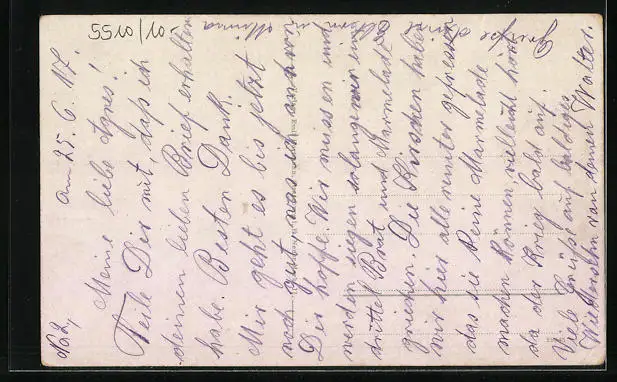 No 2, am 25. 6. 17.
Meine liebe Agnes!
Teile Dir mit, daß ich
deinen lieben Brief erhalten
habe. Besten Dank.
Mir geht es bis jetzt
noch gut, was ich auch von
Dir hoffe. Wir mussen immer
werden siegen solange wir ein
drittel Brot und Marmelade
griechen. Die Kirschen haben
wir hier alle runter gefressen
das sie keine Marmelade
machen können, vielleicht hört
da der Krieg bald auf.
Viele Grüße auf baldiges
Wiedersehn von deinen Walter.
Grüße deine Eltern und Minna
5510/10-